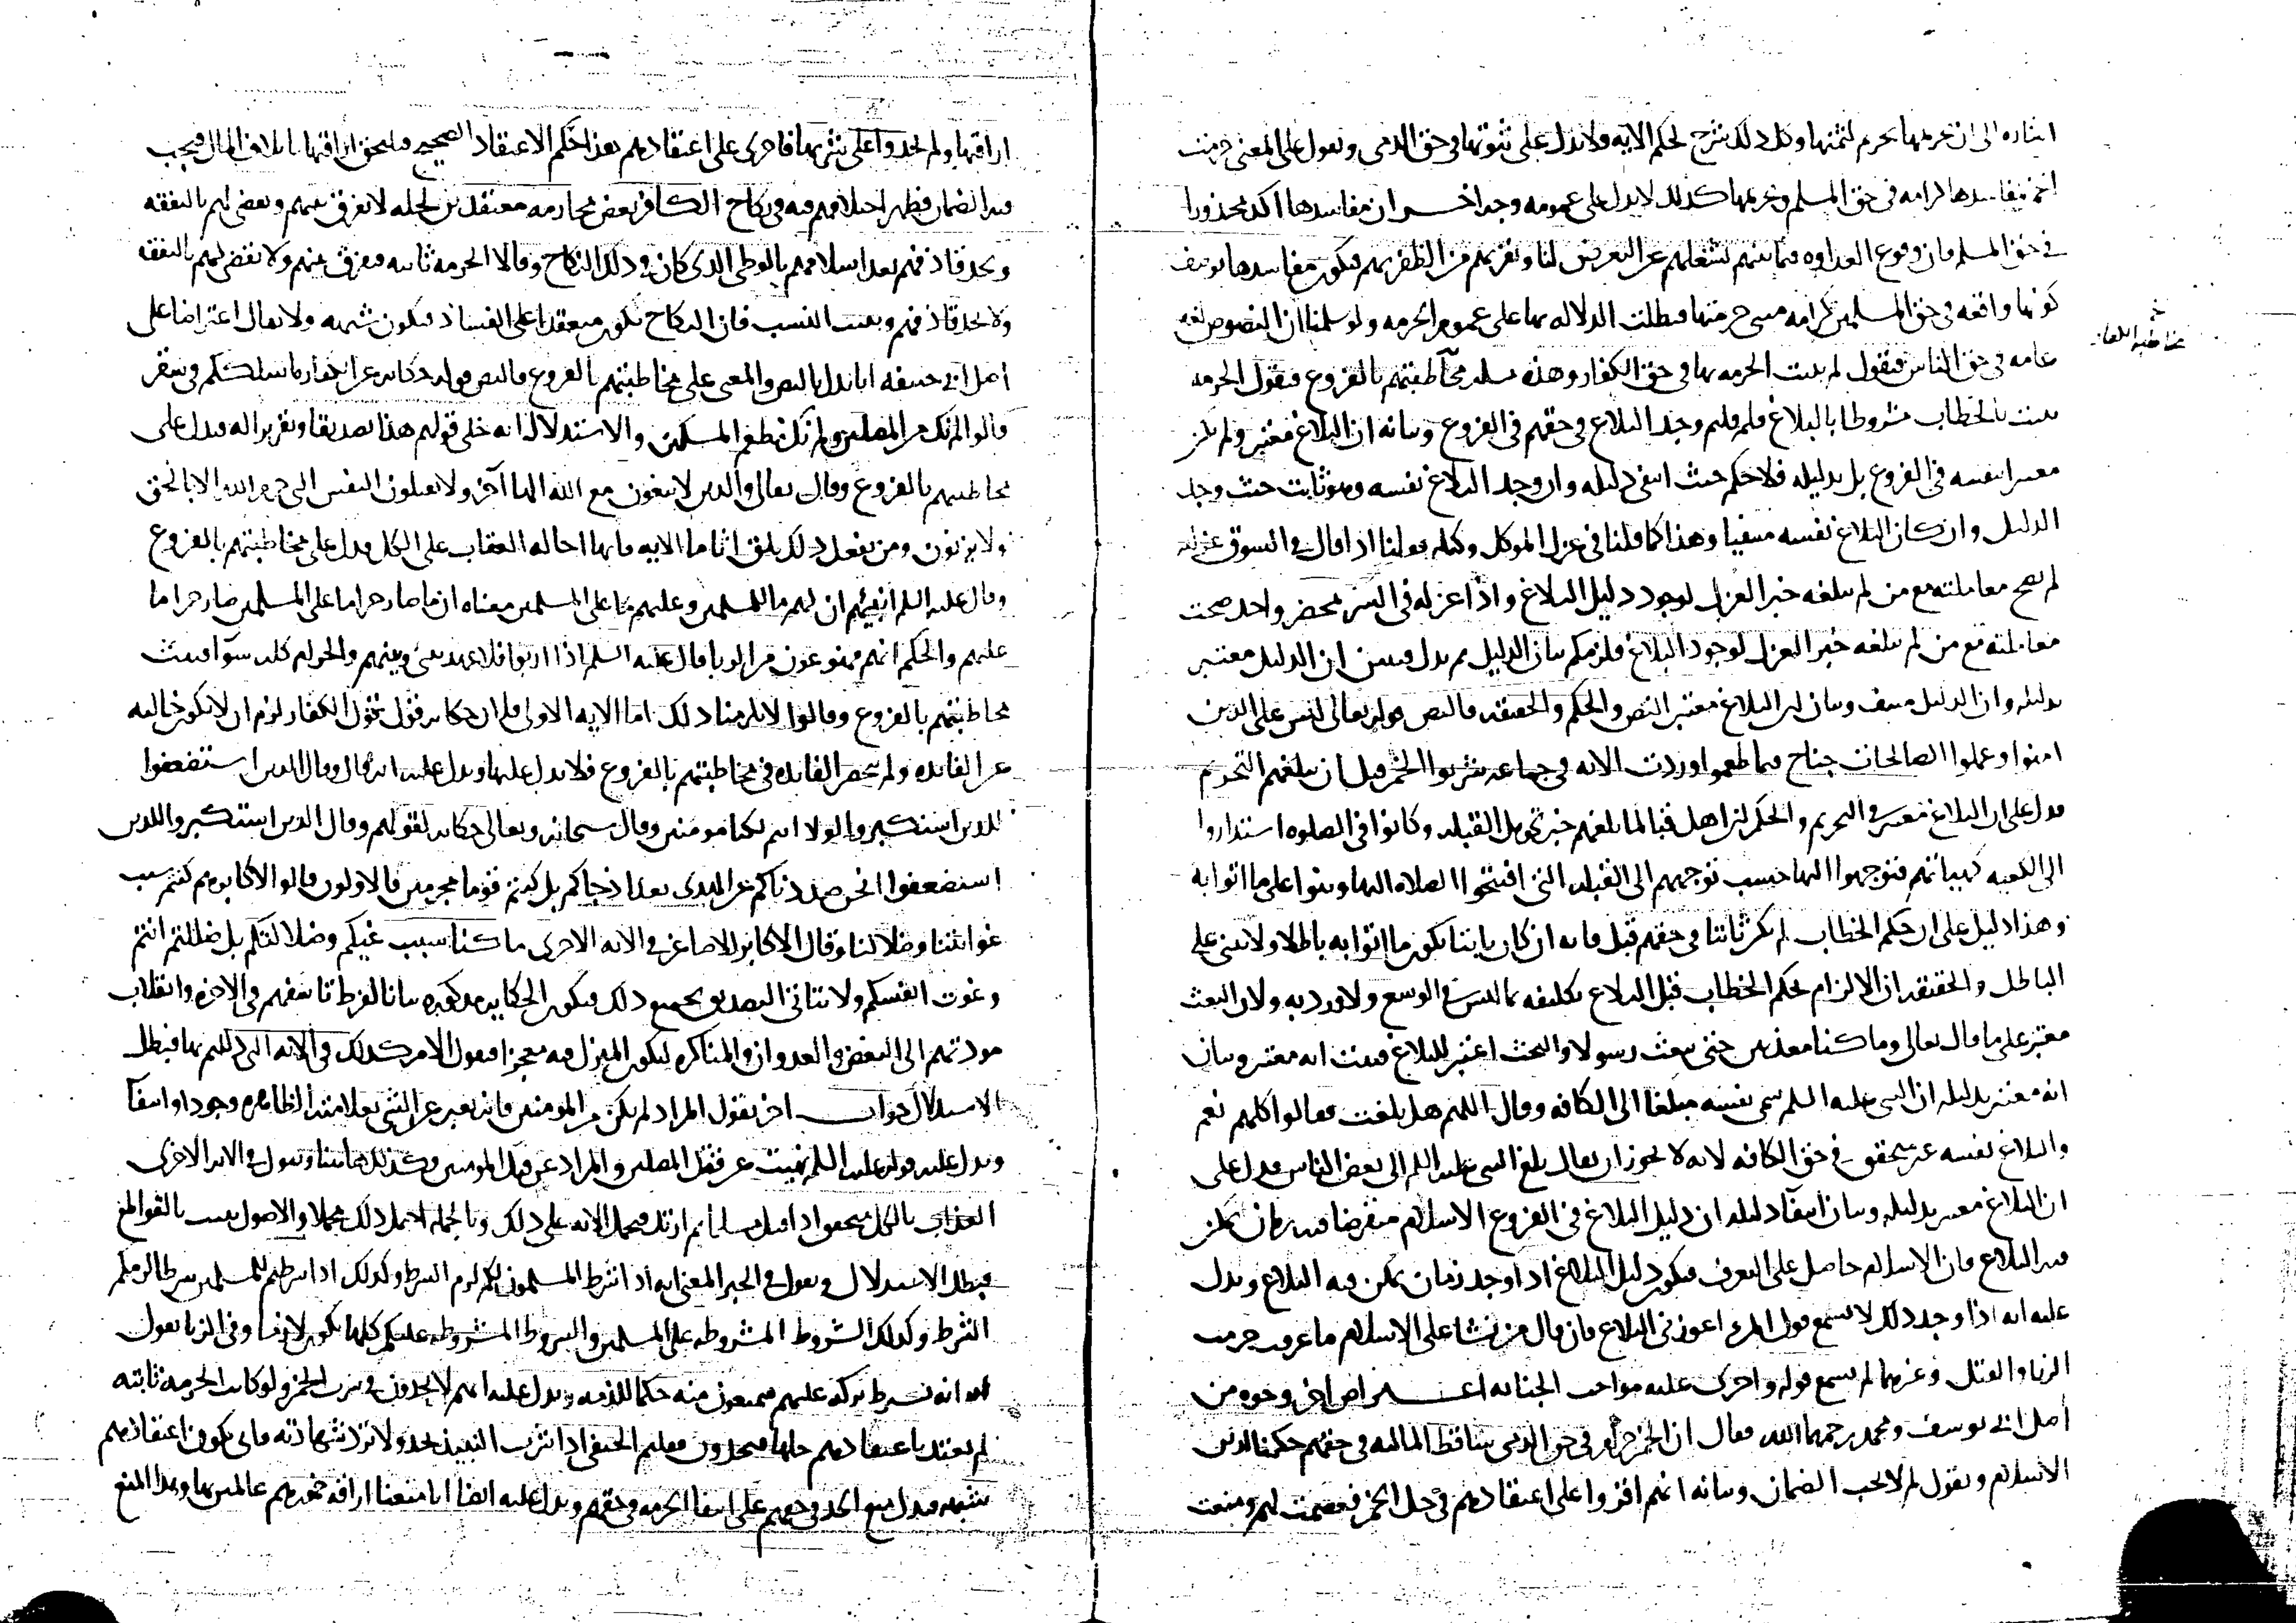 اشاره الى ان تحريمها تحريم لثمنها وكل ذلك شرح لحكم الايه ولا يدل على ثبوتها في حق الذمي ونقول على المعنى حرمت
مفاسدها كرامه في حق المسلم وتحريمها كذلك لا يدل على عمومه وجه اخر ان مفاسدها اكد محذورا
في حق المسلم فان وقوع العداوه فيما بينهم تشغلهم عن التعرض لنا وتقربهم من الظفر بهم فيكون مفاسدها
كونها واقعه في حق المسلمين كرامه حرمتها فبطلت الدلاله بها على عموم الحرمه ولو سلمنا ان النصوص
مخاطبه الكفار
عامه في حق الناس فنقول لم يثبت الحرمه بها في حق الكفار وهذه مسله مخاطبتهم بالفروع فنقول الحرمه
يثبت بالخطاب مشروطا بالبلاغ فلم قلتم وجد البلاغ في حقهم في الفروع وبيانه ان البلاغ معتبر ولم يكن
معتبرا بنفسه في الفروع بل بدليله فلا حكم حيث انتفى دليله وان وجد البلاغ نفسه وهو ثابت حيث وجد
الدليل وان كان البلاغ نفسه منفيا وهذا كما قلنا في عزل الموكل وكيله قولنا اذا قال في السوق عزلته
لم يصح معاملته مع من لم يبلغه خبر العزل لوجود دليل البلاغ واذا عزله في السر بمحضر واحد صحت
معاملته مع من لم يبلغه خبر العزل لوجود البلاغ فلزمكم بيان الدليل ثم يدل ان الدليل معتبر
بدليله وان الدليل منتف وبيان ان البلاغ معتبر النص والحكم والحقيقه فالنص قوله تعالى ليس على الذين
امنوا وعملوا الصالحات جناح فيما طعموا وردت الايه في جماعه شربوا الخمر قبل ان يبلغهم التحريم
فدل على ان البلاغ معتبر في التحريم والحكم ان اهل قبا لما بلغهم خبر تحويل القبله وكانوا في الصلوه استداروا
الى الكعبه كهيأتهم فتوجهوا اليها حسب توجههم الى القبله التي افتتحوا الصلاه اليها وبنوا على ما اتوا به
وهذا دليل على ان حكم الخطاب لم يكن ثابتا في حقهم قبل فانه ان كان ثابتا يكون ما اتوا به باطلا ولا يبنى على
الباطل والحقيقه ان الالزام لحكم الخطاب قبل البلاغ تكليفه بما ليس في الوسع ولا ورد به ولان البعث
معتبر على ما قال تعالى وما كنا معذبين حتى نبعث رسولا والبعث اعتبر للبلاغ فيثبت انه معتبر وبيان
انه معتبر بدليله ان النبي عليه السلم سمى نفسه مبلغا الى الكافه وقال اللهم هل بلغت فقالوا كلهم نعم
والبلاغ نفسه غير متحقق في حق الكافه لانه لا يجوز ان يقال بلغ النبي عليه السلم الى بعض الناس فدل على
ان البلاغ معتبر بدليله وبيان انتفاء دليله ان دليل البلاغ في الفروع الاسلام زمان يمكن
فيه البلاغ فان الاسلام حاصل على التعرف فيكون دليل البلاغ اذا وجد زمان يمكن فيه البلاغ ويدل
عليه انه اذا وجد ذلك لا يسمع قول المرء اعوزني البلاغ فان قال من نشا على الاسلام ما عرفت حرمت
الزنا والقتل وغيرهما لم يسمع قوله واجرى عليه مواجب الجنايه اعتراض اخر وجوه من
اصل ابي يوسف ومحمد رحمهما الله فقال ان الخمر في حق الذمي ساقط الماليه في حقهم حكما لدين
الاسلام ونقول لم لا يجب الضمان وبيانه انهم اقروا على اعتقادهم في حل الخمر فعصمت لهم ومنعت
اراقتها ولم يحدوا على شربها فاجرى على اعتقادهم هذا حكم الاعتقاد الصحيح فيلحق اراقتها باتلاف المال فيجب
فيه الضمان فظهر اختلافهم فيه في نكاح الكافر بعض محارمه معتقدين لحله لا نفرق بينهم ونقضي لهم بالنفقه
ونحد قاذفهم بعد اسلامهم بالوطي الذي كان في ذلك النكاح وقالا الحرمه ثابته فنفرق بينهم ولا نقضي لهم بالنفقه
ولا نحد قاذفهم ويثبت النسب فان النكاح يكون منعقدا على الفساد فيكون شبهه ولا يقال اعتراضا على
اصل ابي حنيفه انا ندل بالنص والمعنى على مخاطبتهم بالفروع فالنص قوله حكايه عن الكفار ما سلككم في سقر
قالوا لم نك من المصلين ولم نك نطعم المسكين والاستدلال انه خلى قولهم هذا تصديقا وتقريرا له فدل على
مخاطبتهم بالفروع وقال تعالى والذين لا يدعون مع الله الها آخر ولا يقتلون النفس التي حرم الله الا بالحق
ولا يزنون ومن يفعل ذلك يلق اثاما الايه فانها احاله العقاب على الكل فدل على مخاطبتهم بالفروع
وقال عليه السلم انبئهم ان لهم ما للمسلمين وعليهم ما على المسلمين معناه ان ما صار حراما على المسلمين صار حراما
عليهم والحكم انهم ممنوعون من الربا قال عليه السلم اذا اربوا فلا عهد بيني وبينهم والحرام كله سوآ فيثبت
مخاطبتهم بالفروع وقالوا لا يلزمنا ذلك اما الايه الاولى فلم ان حكايه قول الكفار لزم ان لا تكون خاليه
عن الفائده ولم تنحصر الفائده في مخاطبتهم بالفروع فلا يدل عليها ويدل عليه انه قال وقال الذين استضعفوا
للذين استكبروا لولا انتم لكنا مومنين وقال سبحانه وتعالى حكايه لقولهم وقال الذين استكبروا للذين
استضعفوا انحن صددناكم عن الهدى بعد اذ جاكم بل كنتم قوما مجرمين فالاولون قالوا الاكابرهم كنتم سبب
غوايتنا وضلالنا وقال الاكابر للاصاغر في الايه الاخرى ما كنا سبب غيكم وضلالتكم بل ضللتم انتم
وغوت انفسكم ولا يتاتى التصديق بجميع ذلك فيكون الحكايه مذكوره بيانا لفرط تاسفهم في الاخره وانقلاب
مودتهم الى البغض والعدوان والمناكره ليكون المنزل فيه معجزا فنقول الامر كذلك في الايه التي دللتم بها فبطل
الاستدلال جواب اخر نقول المراد لم نكن من المومنين فانه يعبر عن الشي بعلامته الظاهره وجودا وانتفآ
ويدل عليه قوله عليه السلم نهيت عن قتل المصلين والمراد عن قتل المومنين وكذلك هاهنا ونقول في الايه الاخرى
العذاب بالكل متحقق اذا قتل مسلما ثم ارتد فيحمل الايه على ذلك وبالجمله
فبطل الاستدلال ونقول في الخبر المعنى انه اذا شرط المسلمون لكم لزم الشرط وكذلك اذا شرطتم للمسلمين شرطا لزمكم
الشرط وكذلك الشروط المشروطه على المسلمين والشروط المشروطه عليكم كلها يكون لازما وفي الربا نقول
انه شرط تركه عليهم فيمنعون منه حكما للذمه ويدل عليه انهم لا يحدون في شرب الخمر ولو كانت الحرمه ثابته
لم يعتد باعتقادهم حلها فيحدون فعليه الحنفي اذا شرب النبيذ يحد ولا ترد شهادته فانى يكون اعتقادهم
شبهه فيدل منع الحد في حقهم على انتفا الحرمه في حقهم ويدل عليه ايضا انا منعنا اراقه خمورهم عالمين بها وهذا المنع